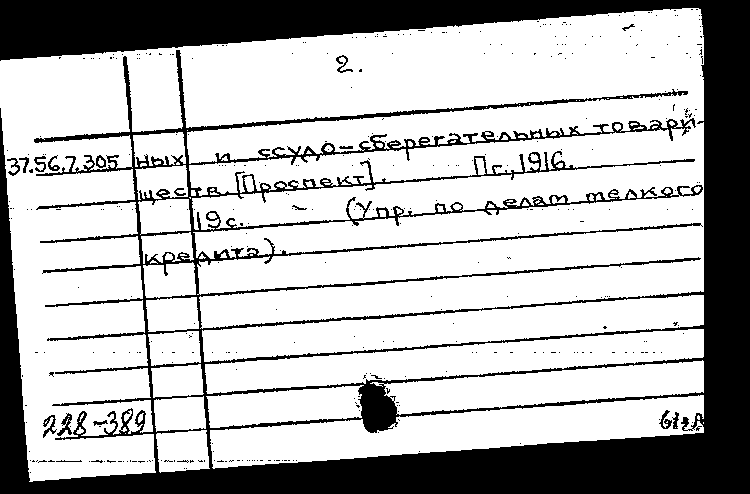 2.
37.56.7.305 ных и ссудо-сберегательных товари-
ществ. [Проспект]. Пг., 1916.
19с. (Упр. по делам мелкого
кредита).
228-389